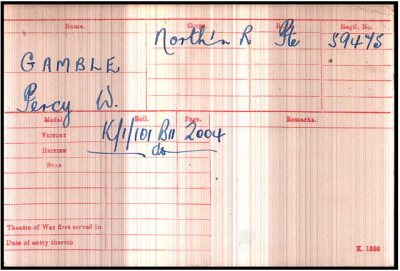 Name. Corps. Rank Regtl. No.
North'n R Pte 59475
GAMBLE
Percy W.
Medal. Roll. Page. Remarks.
VICTORY K/1/101 B11 2004
BRITISH do
STAR
Theatre of War first served in
Date of entry therein
K. 1380